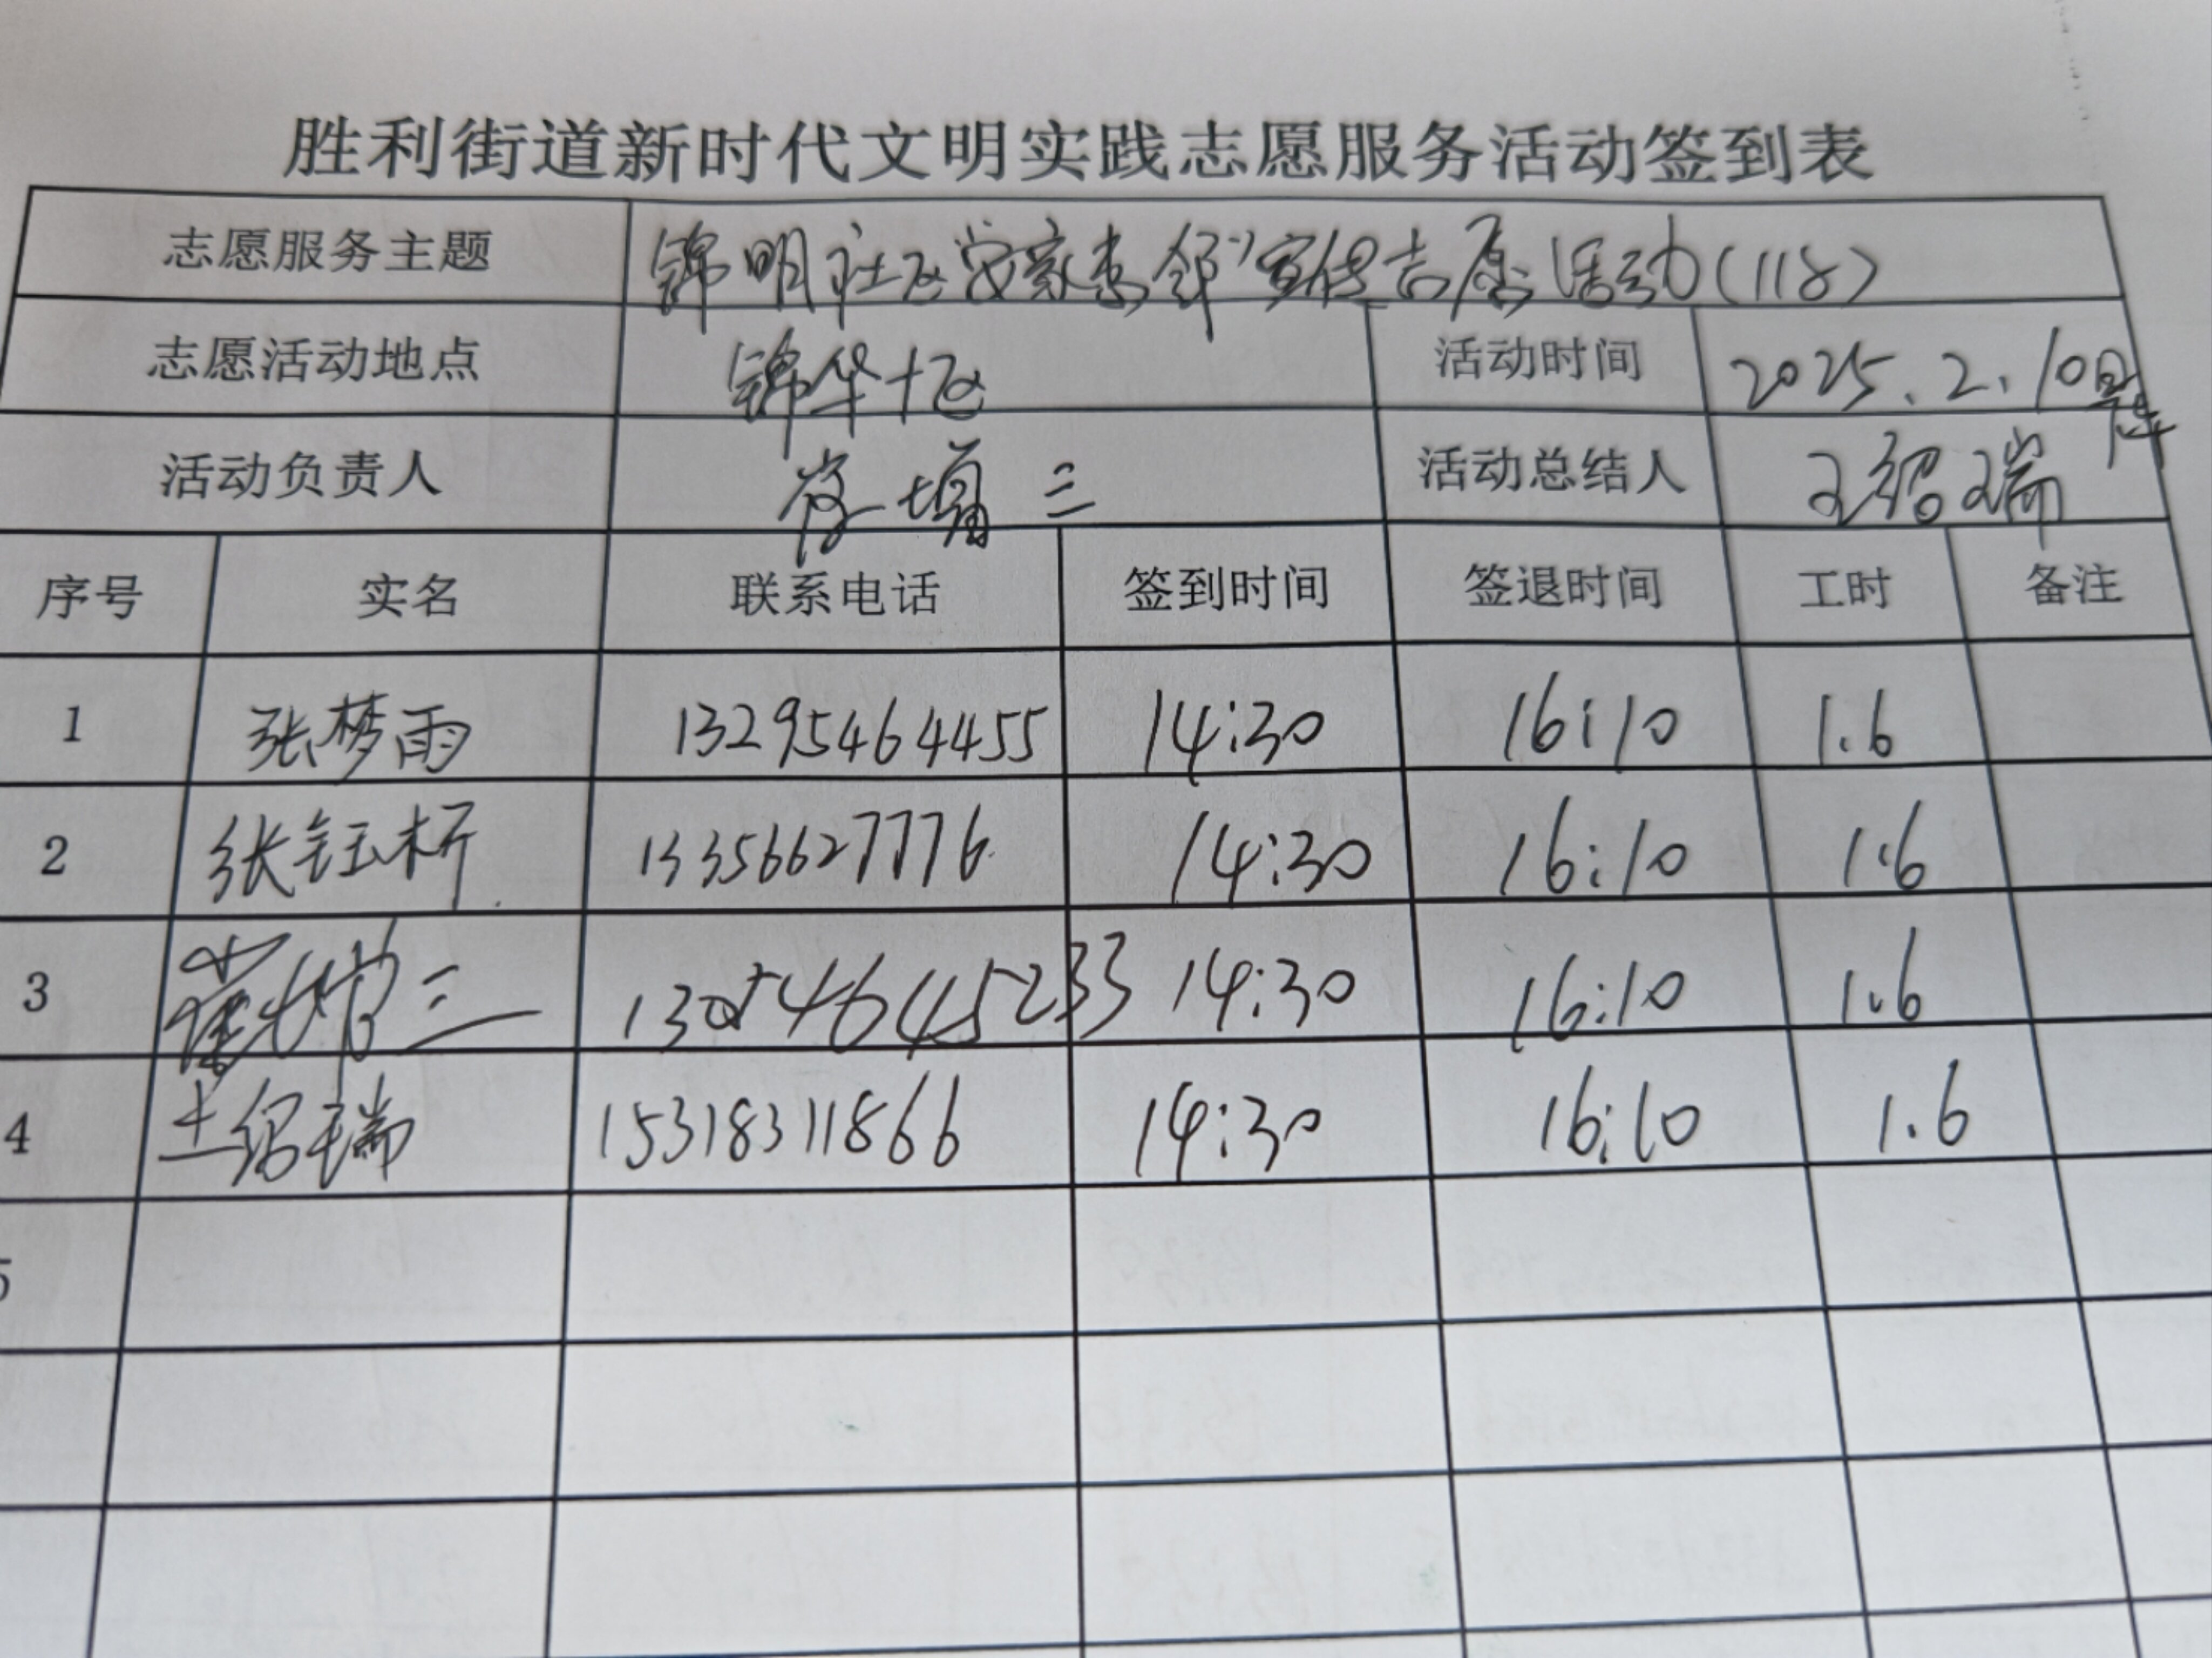 胜利街道新时代文明实践志愿服务活动签到表
志愿服务主题 锦明社区"安家惠邻"宣传志愿活动(118)
志愿活动地点 锦华十区 活动时间 2025.2.10日
活动负责人 三 活动总结人 王绍瑞
序号 实名 联系电话 签到时间 签退时间 工时 备注
1 张梦雨 13295464455 14:30 16:10 1.6
2 张钰析 13356627776 14:30 16:10 1.6
3 三 14:30 16:10 1.6
4 王绍瑞 15318311866 14:30 16:10 1.6
5